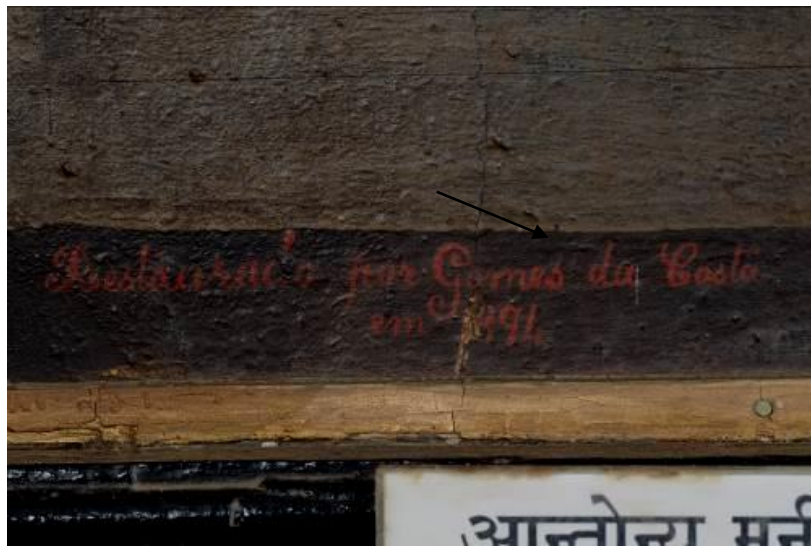 Restaurac'o por Gomes da Costa
em 1894
आन्तोन्य